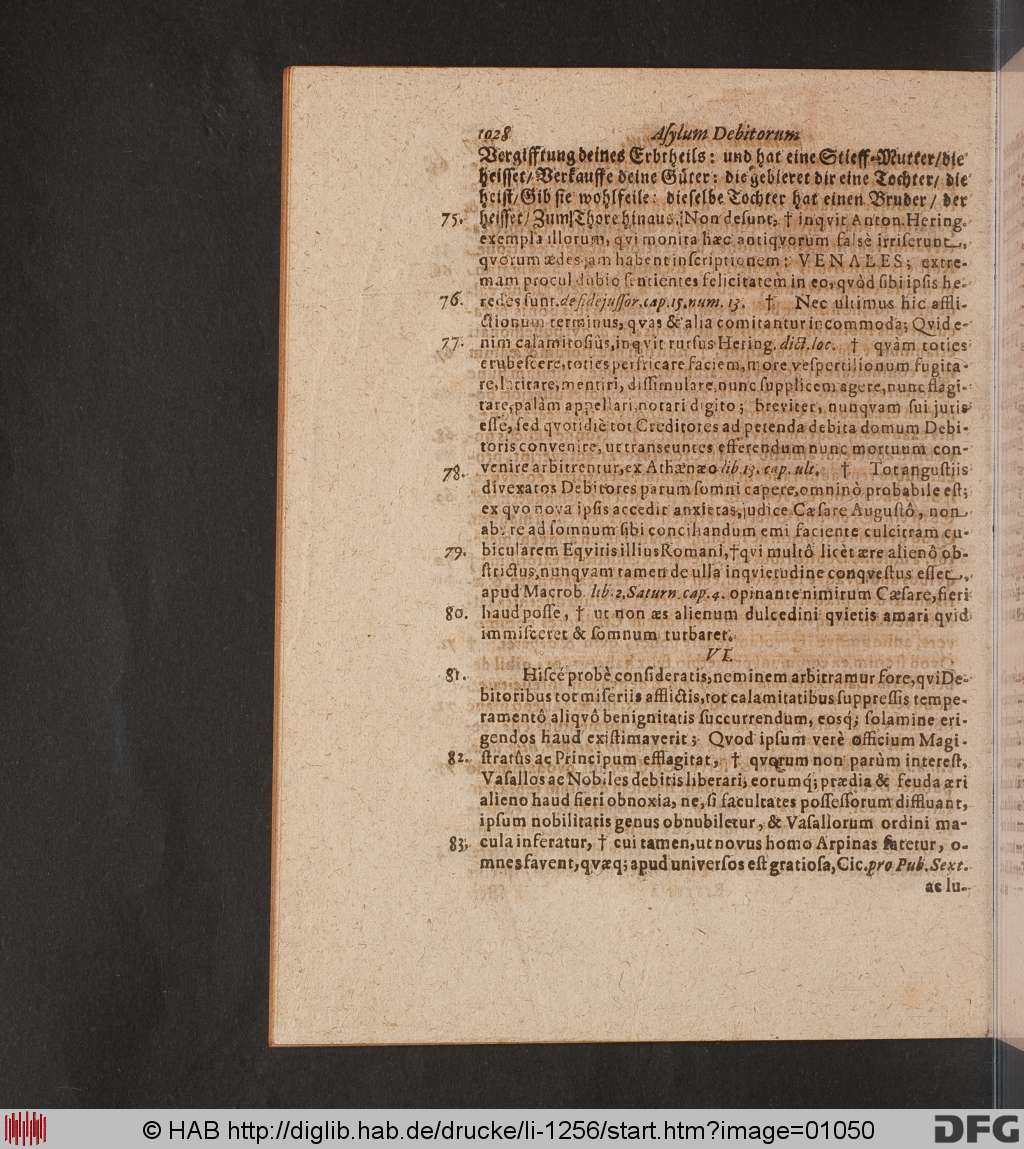 1028 Aſylum Debitorum
Vergifftung deines Erbtheils: und hat eine Stieff-Mutter/die
heiſſet/Verkauffe deine Güter: die gebieret dir eine Tochter/ die
heiſt/Gib ſie wohlfeile: dieſelbe Tochter hat einen Bruder/ der
75. heiſſet/Zum Thore hinaus. Non deſunt, † inqvit Anton. Hering.
exempla illorum, qvi monita hæc antiqvorum falsè irriſerunt,
qvorum ædes jam habent inſcriptionem: VENALES; extre-
mam procul dubio ſentientes felicitatem in eo, qvòd ſibi ipſis he-
76. redes ſunt. de fidejuſſor. cap. 15. num. 13. † Nec ultimus hic affli-
ctionum terminus, qvas & alia comitantur incommoda; Qvid e-
77. nim calamitoſius, inqvit rurſus Hering. dict. loc. † qvàm toties
erubeſcere, toties perfricare faciem, more veſpertilionum fugita-
re, latitare, mentiri, diſſimulare, nunc ſupplicem agere, nunc flagi-
tare, palàm appellari, notari digito; breviter, nunqvam ſui juris
eſſe, ſed qvotidiè tot Creditores ad petenda debita domum Debi-
toris convenire, ut tranſeuntes efferendum nunc mortuum con-
78. venire arbitrentur, ex Athænæo lib. 13. cap. ult. † Tot anguſtiis
divexatos Debitores parum ſomni capere, omninò probabile eſt;
ex qvo nova ipſis accedit anxietas, judice Cæſare Auguſtô, non
ab re ad ſomnum ſibi conciliandum emi faciente culcitram cu-
79. bicularem Eqvitis illius Romani, † qvi multô licèt ære alienô ob-
ſtrictus, nunqvam tamen de ulla inqvietudine conqveſtus eſſet,
apud Macrob. lib. 2. Saturn. cap. 4. opinante nimirum Cæſare, fieri
80. haud poſſe, † ut non æs alienum dulcedini qvietis amari qvid
immiſceret & ſomnum turbaret.
VI.
81. Hiſcé probè conſideratis, neminem arbitramur fore, qvi De-
bitoribus tot miſeriis afflictis, tot calamitatibus ſuppreſſis tempe-
ramentô aliqvô benignitatis ſuccurrendum, eosq́; ſolamine eri-
gendos haud exiſtimaverit; Qvod ipſum verè officium Magi-
82. ſtratûs ac Principum efflagitat, † qvorum non parùm intereſt,
Vaſallos ac Nobiles debitis liberari, eorumq́; prædia & feuda æri
alieno haud fieri obnoxia, ne, ſi facultates poſſeſſorum diffluant,
ipſum nobilitatis genus obnubiletur, & Vaſallorum ordini ma-
83. cula inferatur, † cui tamen, ut novus homo Arpinas fatetur, o-
mnes favent, qvæq; apud univerſos eſt gratioſa, Cic. pro Pub. Sext.
ac lu-
© HAB http://diglib.hab.de/drucke/li-1256/start.htm?image=01050
DFG